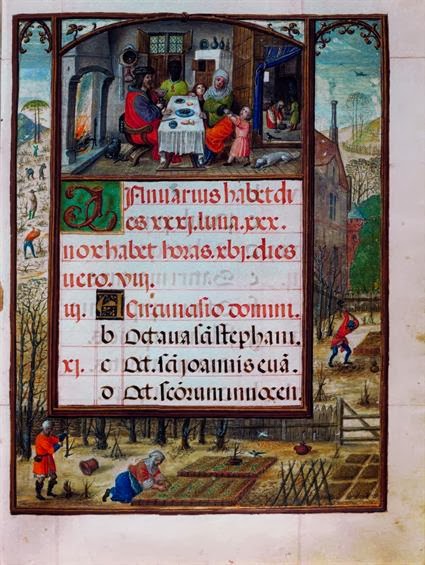 Januarius habet di
es xxxj. luna .xxx.
nox habet horas .xbj. dies
uero .viii.
iij. A Circuncisio domini.
b Octaua scī stephani.
xj. c Oct. scī ioannis euā.
d Oct. scōrum innocen.